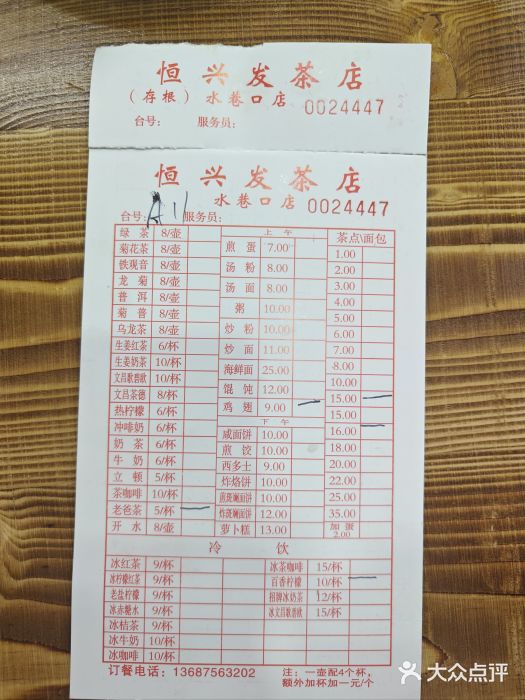 恒兴发茶店
（存根） 水巷口店 0024447
台号： 服务员：
恒兴发茶店
水巷口店 0024447
台号：A11 服务员：
绿茶 8/壶
菊花茶 8/壶
铁观音 8/壶
龙菊 8/壶
普洱 8/壶
菊普 8/壶
乌龙茶 8/壶
生姜红茶 6/杯
生姜奶茶 10/杯
文昌歌碧欧 10/杯
文昌茶德 8/杯
热柠檬 6/杯
冲啡奶 6/杯
奶茶 6/杯
牛奶 6/杯
立顿 5/杯
茶咖啡 10/杯
老爸茶 5/杯
开水 8/壶
上午
煎蛋 7.00
汤粉 8.00
汤面 8.00
粥 10.00
炒粉 10.00
炒面 11.00
海鲜面 25.00
馄饨 12.00
鸡翅 9.00
下午
咸面饼 10.00
煎饺 10.00
西多士 9.00
炸烙饼 10.00
煎斑斓面饼 10.00
炸斑斓面饼 12.00
萝卜糕 13.00
茶点\面包
1.00
2.00
3.00
4.00
5.00
6.00
7.00
8.00
10.00
15.00
15.00
16.00
18.00
20.00
22.00
25.00
35.00
加蛋 2.00
冷饮
冰红茶 9/杯
冰柠檬红茶 9/杯
老盐柠檬 9/杯
冰赤糖水 9/杯
冰桔茶 9/杯
冰牛奶 10/杯
冰咖啡 10/杯
冰茶咖啡 15/杯
百香柠檬 10/杯
招牌冰奶茶 12/杯
冰文昌歌碧欧 15/杯
订餐电话：13687563202
注：一壶配4个杯，
额外加杯加一元/个
大众点评